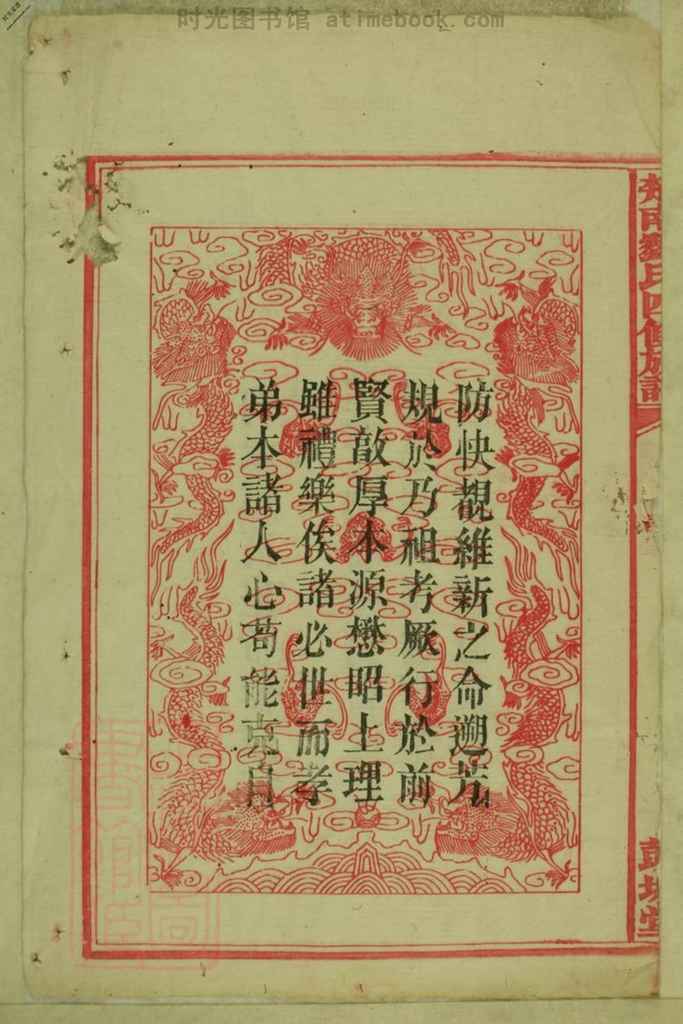 时光图书馆 atimebook.com
南劉氏四修族譜
彭城堂
防快覩維新之命遡芳
規於乃祖考厥行於前
賢敦厚本源懋昭上理
雖禮樂俟諸必世而孝
弟本諸人心苟能克自